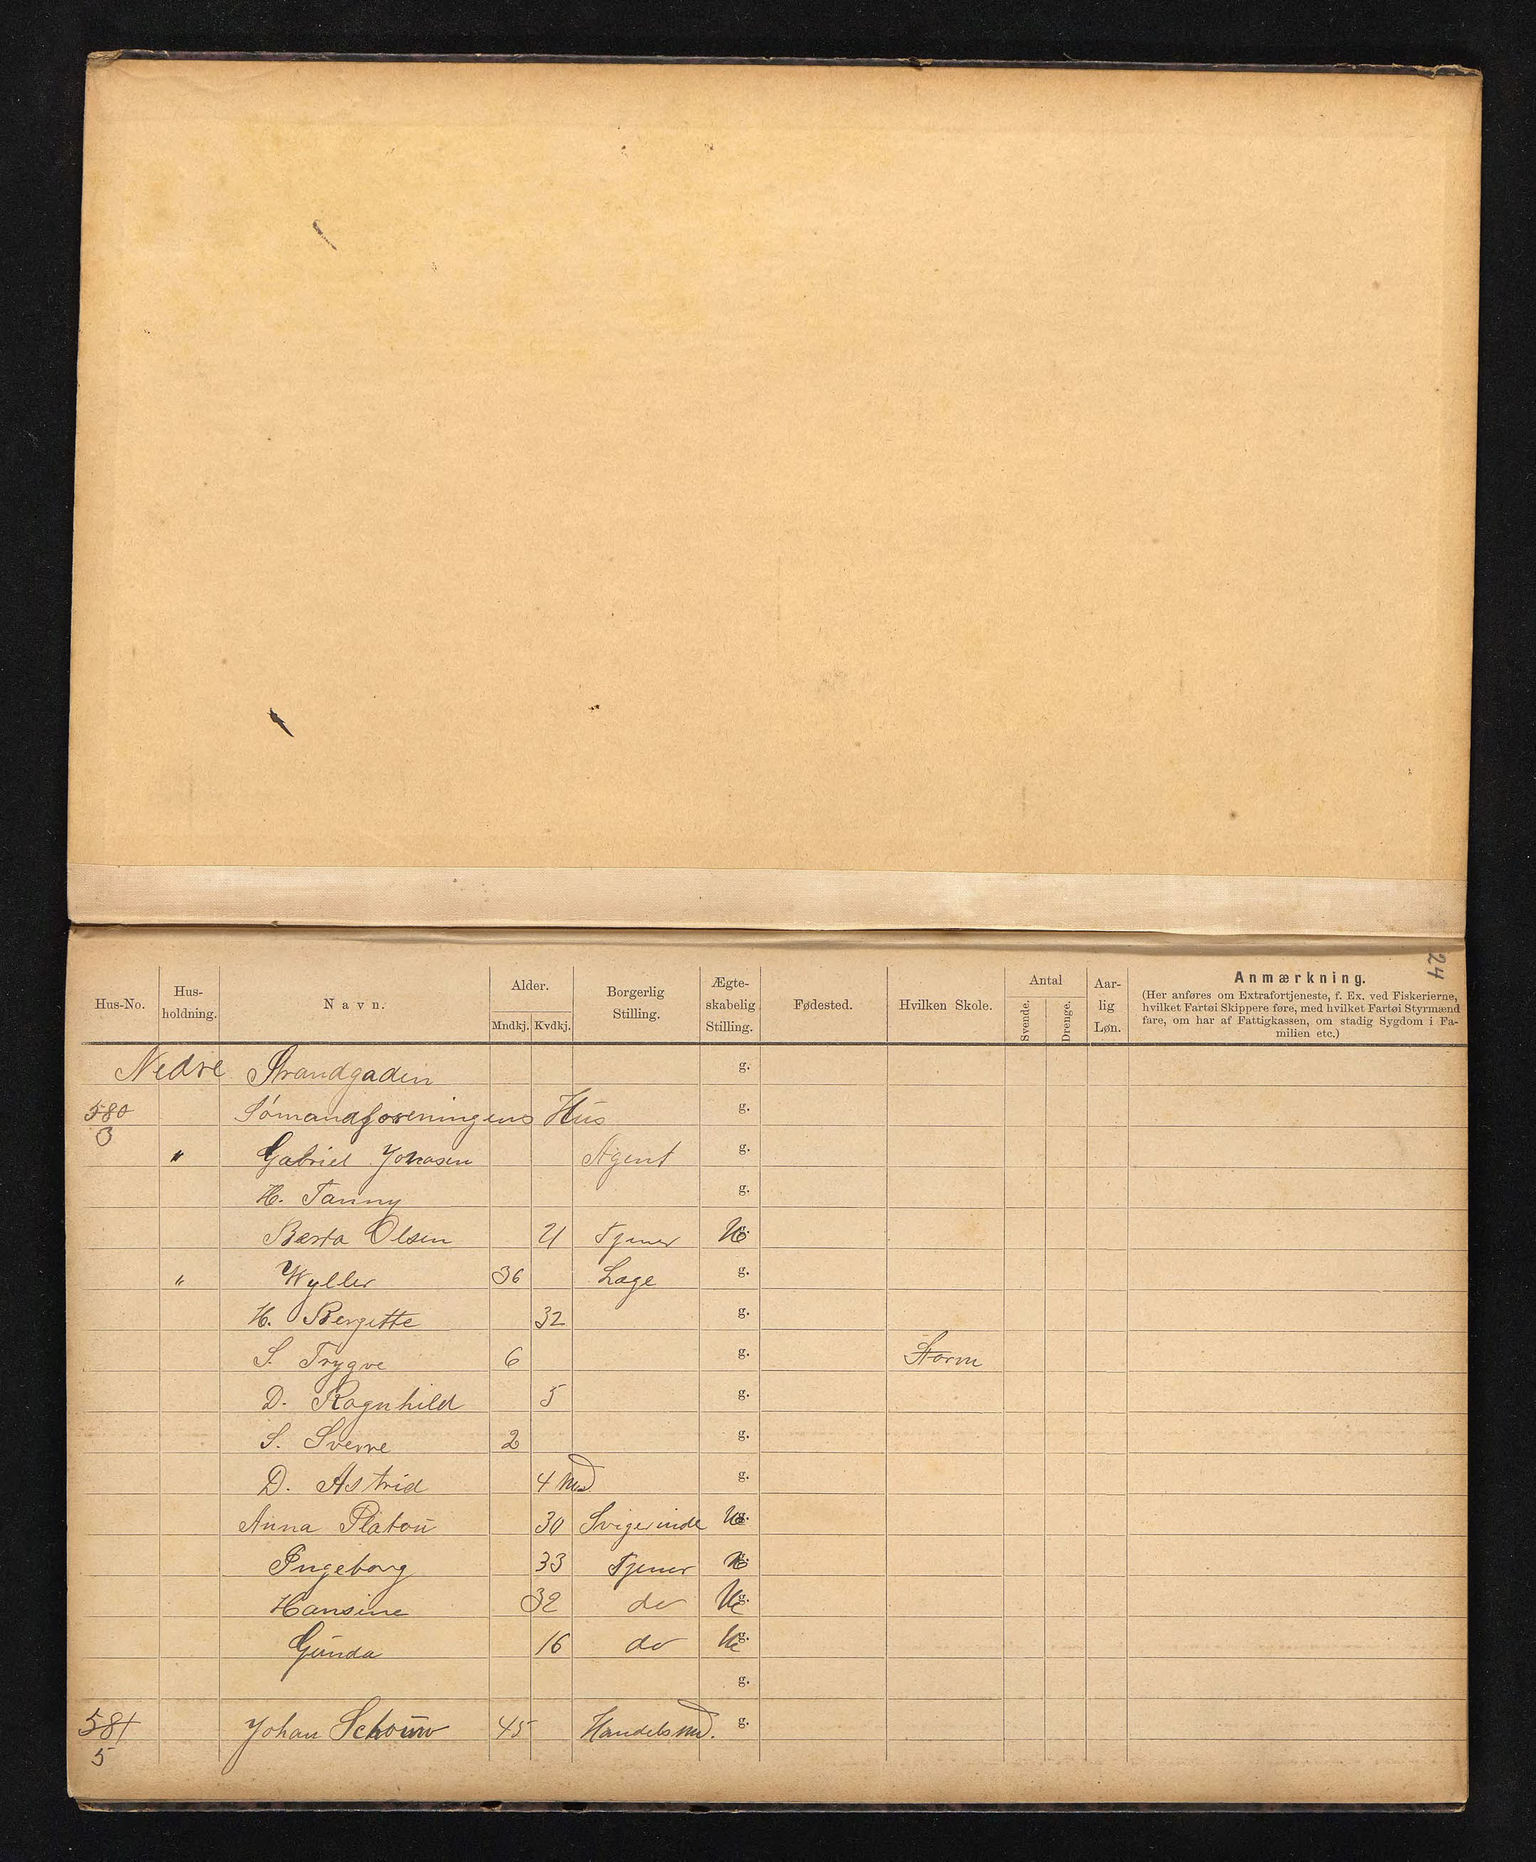 24
Hus-No. Hus-holdning. Navn. Alder. Mndkj. Kvdkj. Borgerlig Stilling. Ægte-skabelig Stilling. Fødested. Hvilken Skole. Antal Svende. Drenge. Aar-lig Løn. Anmærkning.
(Her anføres om Extrafortjeneste, f. Ex. ved Fiskerierne,
hvilket Fartøi Skippere føre, med hvilket Fartøi Styrmænd
fare, om har af Fattigkassen, om stadig Sygdom i Fa-
milien etc.)
Nedre Strandgaden g.
580 Sømandforeningens Hus g.
3
" Gabriel Jonasen Agent g.
H. Fanny g.
Berta Olsen 21 Tjener U g.
" Wyller 36 Læge g.
H. Bergitte 32 g.
S. Trygve 6 g. Storm
D. Ragnhild 5 g.
S. Sverre 2 g.
D. Astrid 4 Md g.
Anna Platou 30 Svigerinde U g.
Ingeborg 33 Tjener U g.
Hansine 32 do U g.
Gunda 16 do U g.
g.
581 Johan Schouw 45 Handelsmd. g.
5